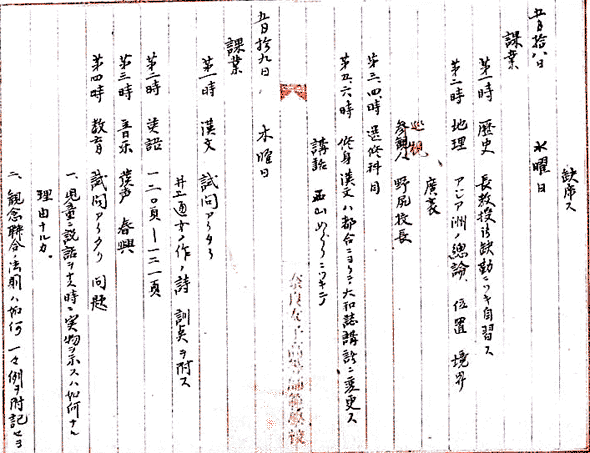 缺席ス
五月拾八日 水曜日
課業
第一時 歴史 長教授御缺勤ニツキ自習ス
第二時 地理 アジア洲ノ總論、位置 境界
、廣袤
巡視
参観人 野尻校長
第三、四時 選修科目
第五、六時 修身漢文ハ都合ニヨリテ大和誌講話ニ変更ス
講話 西山めぐりニツキテ
五月拾九日 木曜日
課業
第一時 漢文 試問アリタリ
井上通女ノ作ノ詩 訓点ヲ附ス
第二時 英語 一二〇頁ー一二一頁
第三時 音楽 復声 春興
第四時 教育 試問アリタリ 問題
一、児童ニ説話ヲナス時ニ実物ヲ示スハ如何ナル
理由ナルカ。
二、観念聯合ノ法則ハ如何 一々例ヲ附記セヨ
奈良女子高等師範學校